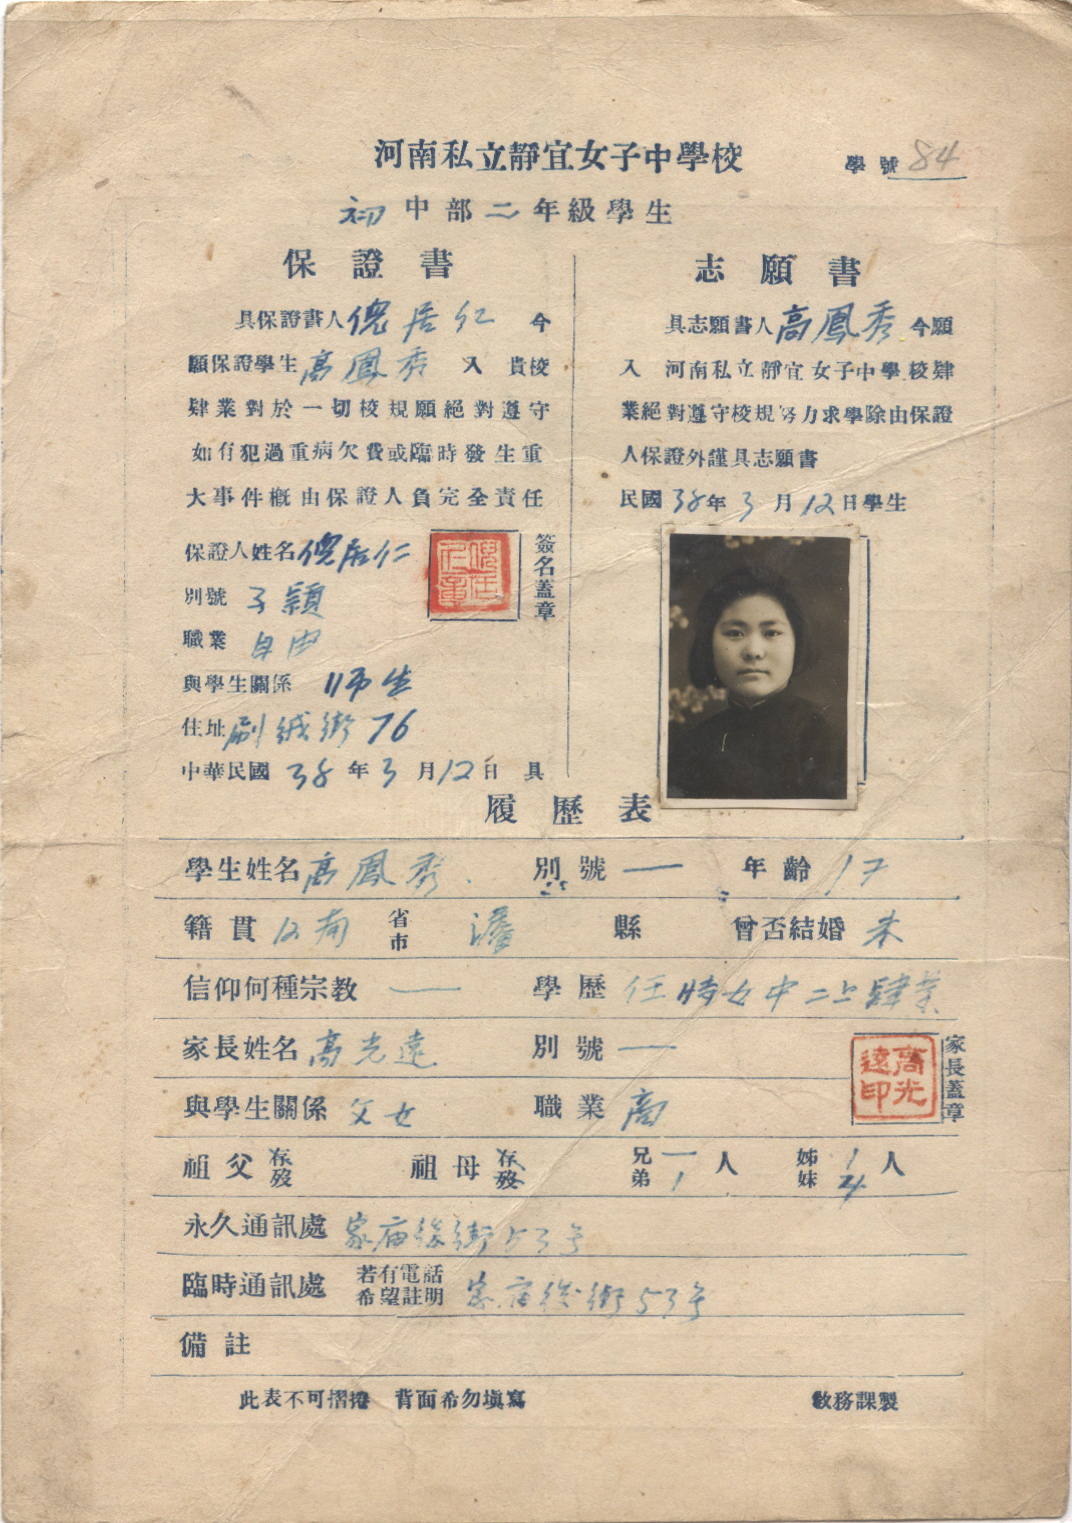 河南私立靜宜女子中學校
學號 84
初中部二年級學生
保證書
具保證書人倪居仁今
願保證學生高鳳秀入貴校
肄業對於一切校規願絕對遵守
如有犯過重病欠費或臨時發生重
大事件概由保證人負完全責任
保證人姓名倪居仁
簽名蓋章
別號 子穎
職業 自由
與學生關係 師生
住址刷絨街76
中華民國38年3月12日具
志願書
具志願書人高鳳秀今願
入河南私立靜宜女子中學校肄
業絕對遵守校規努力求學除由保證
人保證外謹具志願書
民國38年3月12日學生
履歷表
學生姓名高鳳秀 別號 一 年齡 17
籍貫 南 省市 縣 曾否結婚 未
信仰何種宗教 一 學歷 任時女中二上肄業
家長姓名 高光遠 別號 一
家長蓋章
高光遠印
與學生關係 父女 職業 商
祖父存歿 祖母存歿 兄一弟1人 姊1妹4人
永久通訊處 家庙後街53号
臨時通訊處 若有電話希望註明 家庙後街53号
備註
此表不可摺捲 背面希勿填寫 教務課製